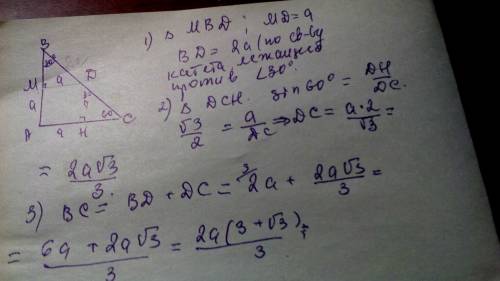 B
30°
M
a
D
a
60°
A
a
H
C
1) Δ MBD; MD=a
BD= 2a (по св-ву
катета, лежащего
против ∠30°.
2) Δ DCH. sin 60° = DH/DC.
√3/2 = a/DC ⇒ DC = a·2/√3 =
= 2a√3/3.
3) BC = BD + DC = 2a + 2a√3/3 =
= 6a + 2a√3/3 = 2a(3+√3)/3